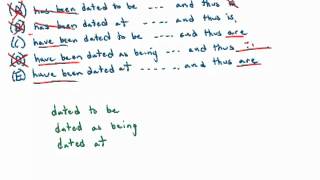 (A) has been dated to be ---- and thus is
(B) has been dated at ---- and thus is
(C) have been dated to be ---- and thus are
(D) have been dated as being ---- and thus
(E) have been dated at ---- and thus are
dated to be
dated as being
dated at